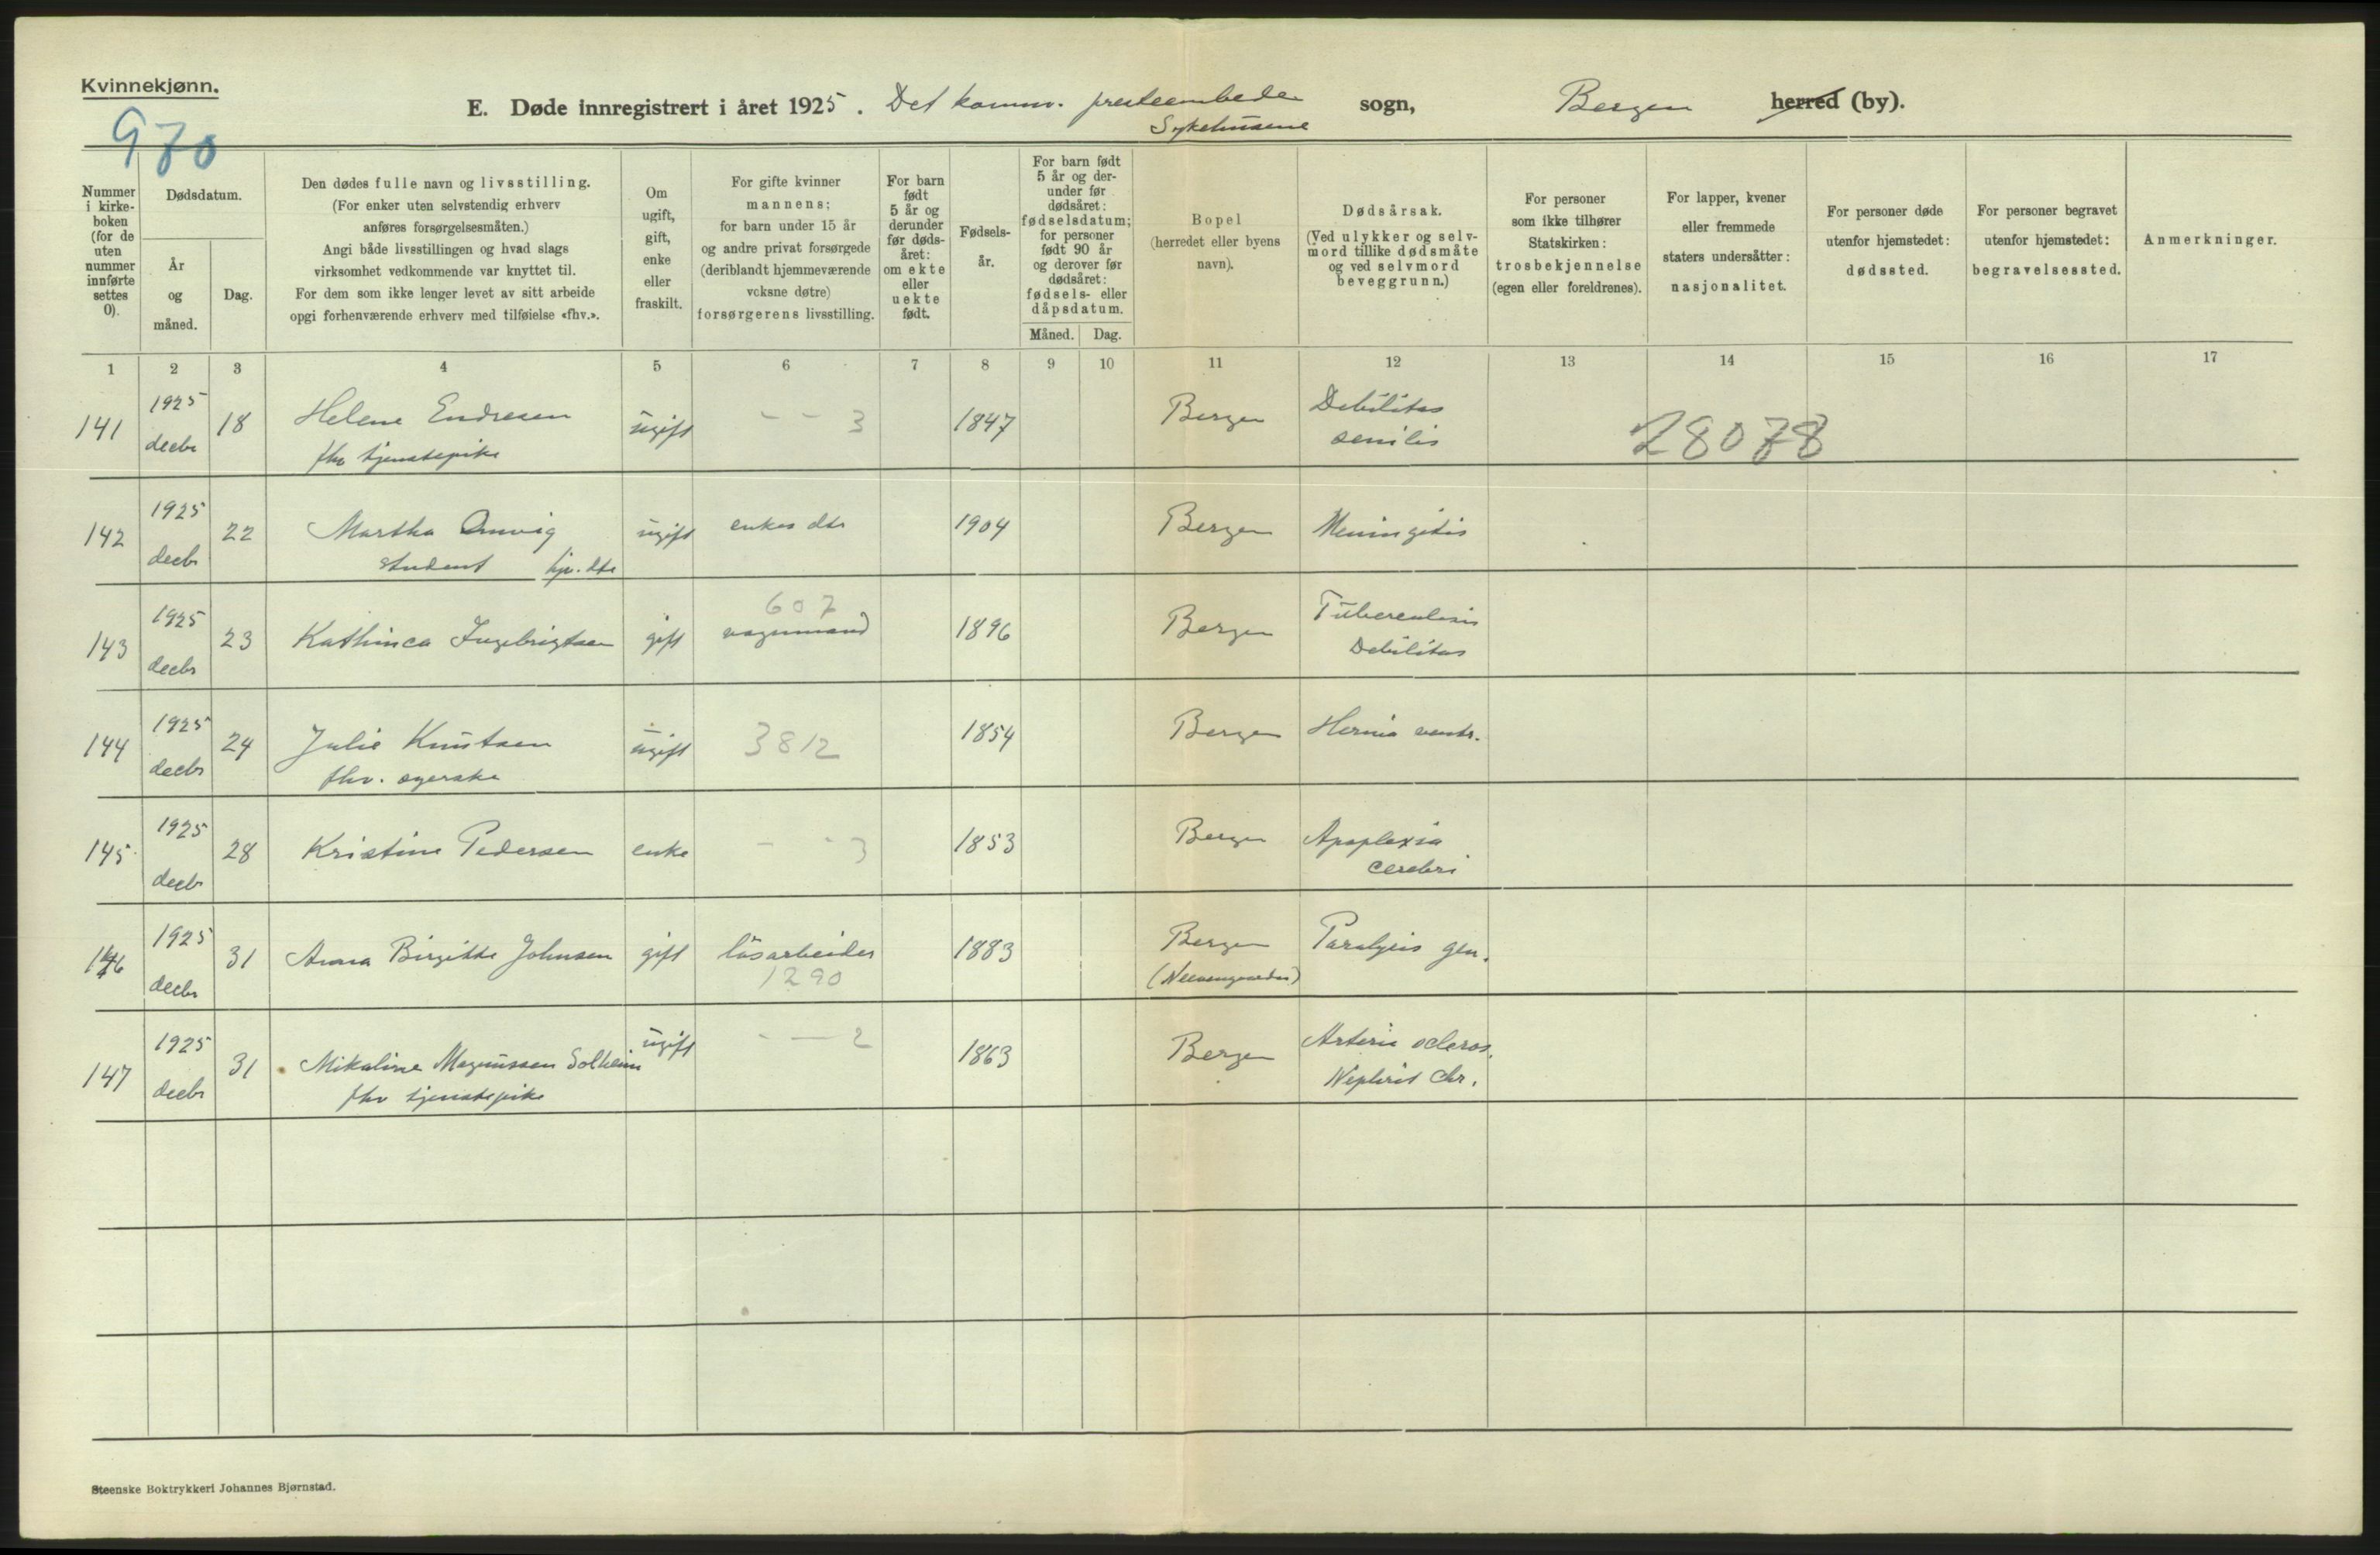 Kvinnekjønn.
970
E. Døde innregistrert i året 1925. Det komm. presteembede sogn, Bergen herred (by).
Sykehusene
Nummer i kirkeboken (for de uten nummer innførte settes 0).
Dødsdatum.
År og måned.
Dag.
Den dødes fulle navn og livsstilling.
(For enker uten selvstendig erhverv
anføres forsørgelsesmåten.)
Angi både livsstillingen og hvad slags
virksomhet vedkommende var knyttet til.
For dem som ikke lenger levet av sitt arbeide
opgi forhenværende erhverv med tilføielse «fhv.».
Om ugift, gift, enke eller fraskilt.
For gifte kvinner
mannens;
for barn under 15 år
og andre privat forsørgede
(deriblandt hjemmeværende
voksne døtre)
forsørgerens livsstilling.
For barn født 5 år og derunder før dødsåret: om ekte eller uekte født.
Fødselsår.
For barn født 5 år og derunder før dødsåret: fødselsdatum; for personer født 90 år og derover før dødsåret: fødsels- eller dåpsdatum.
Måned. Dag.
Bopel
(herredet eller byens
navn).
Dødsårsak.
(Ved ulykker og selvmord tillike dødsmåte
og ved selvmord
beveggrunn.)
For personer
som ikke tilhører
Statskirken:
trosbekjennelse
(egen eller foreldrenes).
For lapper, kvener
eller fremmede
staters undersåtter:
nasjonalitet.
For personer døde
utenfor hjemstedet:
dødssted.
For personer begravet
utenfor hjemstedet:
begravelsessted.
Anmerkninger.
1 2 3 4 5 6 7 8 9 10 11 12 13 14 15 16 17
141 1925 decbr 18 Helene Endresen ugift - - 3 1847 Bergen Debilitas
fhv tjenestepike senilis 28078
142 1925 decbr 22 Martha ugift enkes dtr 1904 Bergen Meningitis
student hjv. dtr
607
143 1925 decbr 23 Kathinca Ingebrigtsen gift vognmand 1896 Bergen Tuberculosis
Debilitas
144 1925 decbr 24 Julie Knutsen ugift 3812 1854 Bergen Hernia ventr.
fhv. syerske
145 1925 decbr 28 Kristine Pedersen enke - - 3 1853 Bergen Apoplexia
cerebri
146 1925 decbr 31 Anna Birgitte Johnsen gift løsarbeider 1883 Bergen Paralysis gen.
1290 (Neevengaarden)
147 1925 decbr 31 Mikaline Magnussen Solheim ugift - — 2 1863 Bergen Arterio scleros.
fhv tjenestepike Nephrit chr.
Steenske Boktrykkeri Johannes Bjørnstad.